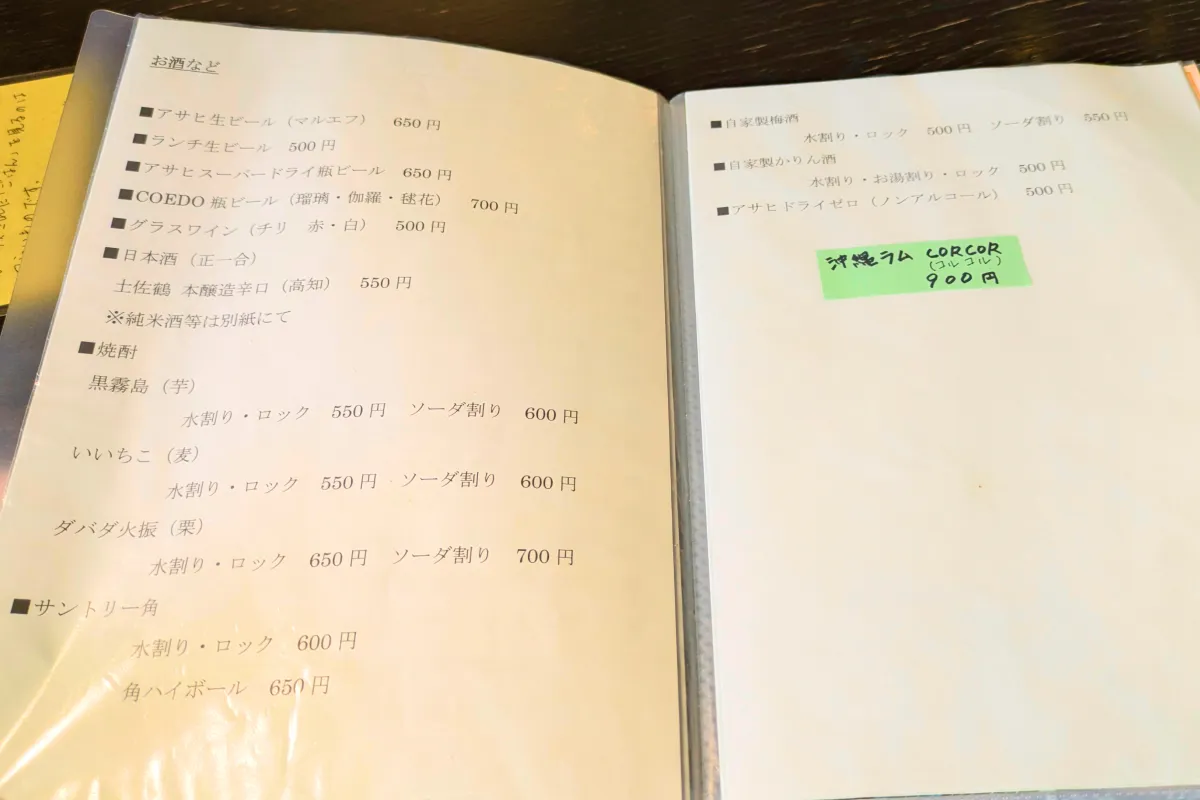 お酒など
■アサヒ生ビール（マルエフ）　650円
■ランチ生ビール　500円
■アサヒスーパードライ瓶ビール　650円
■COEDO瓶ビール（瑠璃・伽羅・毬花）　700円
■グラスワイン（チリ　赤・白）　500円
■日本酒（正一合）
土佐鶴 本醸造辛口（高知）　550円
※純米酒等は別紙にて
■焼酎
黒霧島（芋）
水割り・ロック　550円　ソーダ割り　600円
いいちこ（麦）
水割り・ロック　550円　ソーダ割り　600円
ダバダ火振（栗）
水割り・ロック　650円　ソーダ割り　700円
■サントリー角
水割り・ロック　600円
角ハイボール　650円
■自家製梅酒
水割り・ロック　500円　ソーダ割り　550円
■自家製かりん酒
水割り・お湯割り・ロック　500円
■アサヒドライゼロ（ノンアルコール）　500円
沖縄ラム CORCOR
（コルコル）
900円